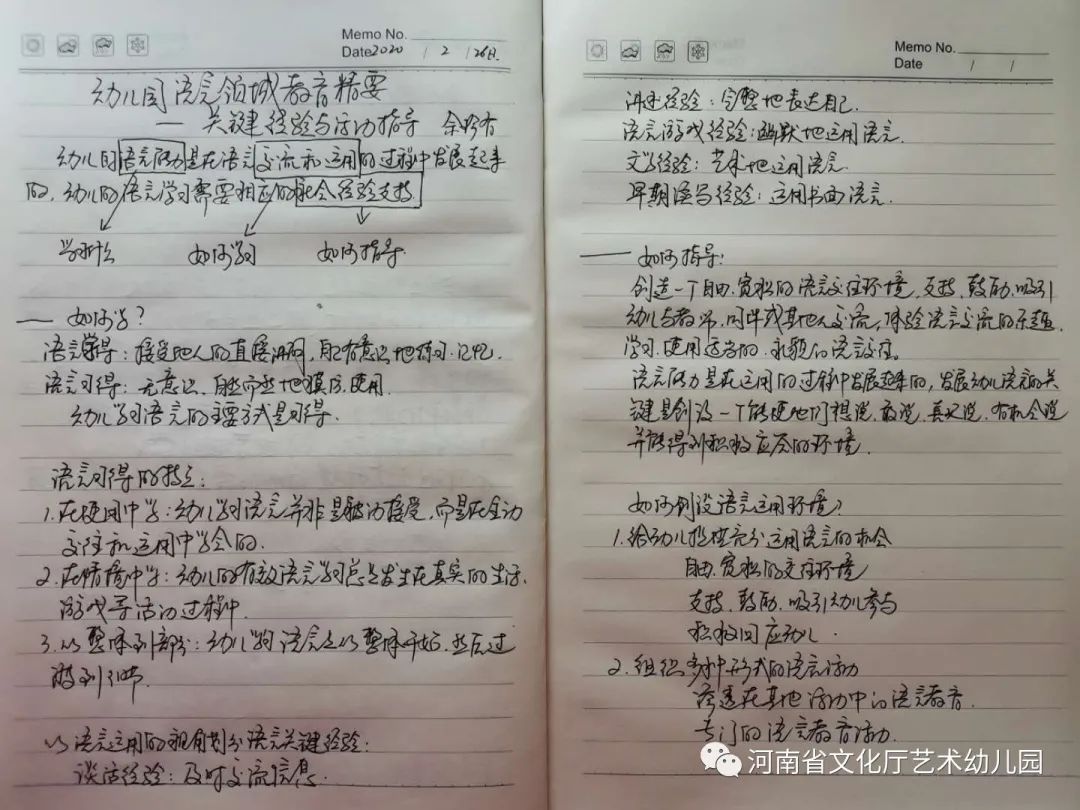 Memo No.
Date 2020 / 2 / 26日
幼儿园语言领域教育精要
— 关键经验与活动指导 余珍有
幼儿的语言能力是在语言交流和运用的过程中发展起来
的,幼儿的语言学习需要相应的社会经验支持.
学习什么 如何学习 如何指导
— 如何学?
语言学得:接受他人的直接讲解,自己有意识地练习、记忆.
语言习得:无意识、自然而然地模仿、使用.
幼儿学习语言的主要方式是习得.
语言习得的特点:
1.在使用中学:幼儿学习语言并非是被动接受,而是在主动
交往和运用中学会的.
2.在情境中学:幼儿的有效语言学习总是发生在真实的生活、
游戏等活动过程中.
3.从整体到部分:幼儿学习语言是从整体开始,然后过
渡到细节.
从语言运用的视角划分语言关键经验:
谈话经验:及时交流信息.
Memo No.
Date / /
讲述经验:完整地表达自己.
语言游戏经验:幽默地运用语言.
文学经验:艺术地运用语言.
早期读写经验:运用书面语言.
— 如何指导:
创造一个自由、宽松的语言交往环境,支持、鼓励、吸引
幼儿与教师、同伴或其他人交流,体验语言交流的乐趣.
学习、使用适当的、礼貌的语言交往。
语言能力是在运用的过程中发展起来的,发展幼儿语言的关
键是创设一个能使他们想说、敢说、喜欢说、有机会说
并能得到积极应答的环境.
如何创设语言运用环境?
1.给幼儿提供充分运用语言的机会
自由、宽松的交往环境
支持、鼓励、吸引幼儿参与
积极回应幼儿.
2.组织多种形式的语言活动
渗透在其他活动中的语言教育.
专门的语言教育活动.
河南省文化厅艺术幼儿园